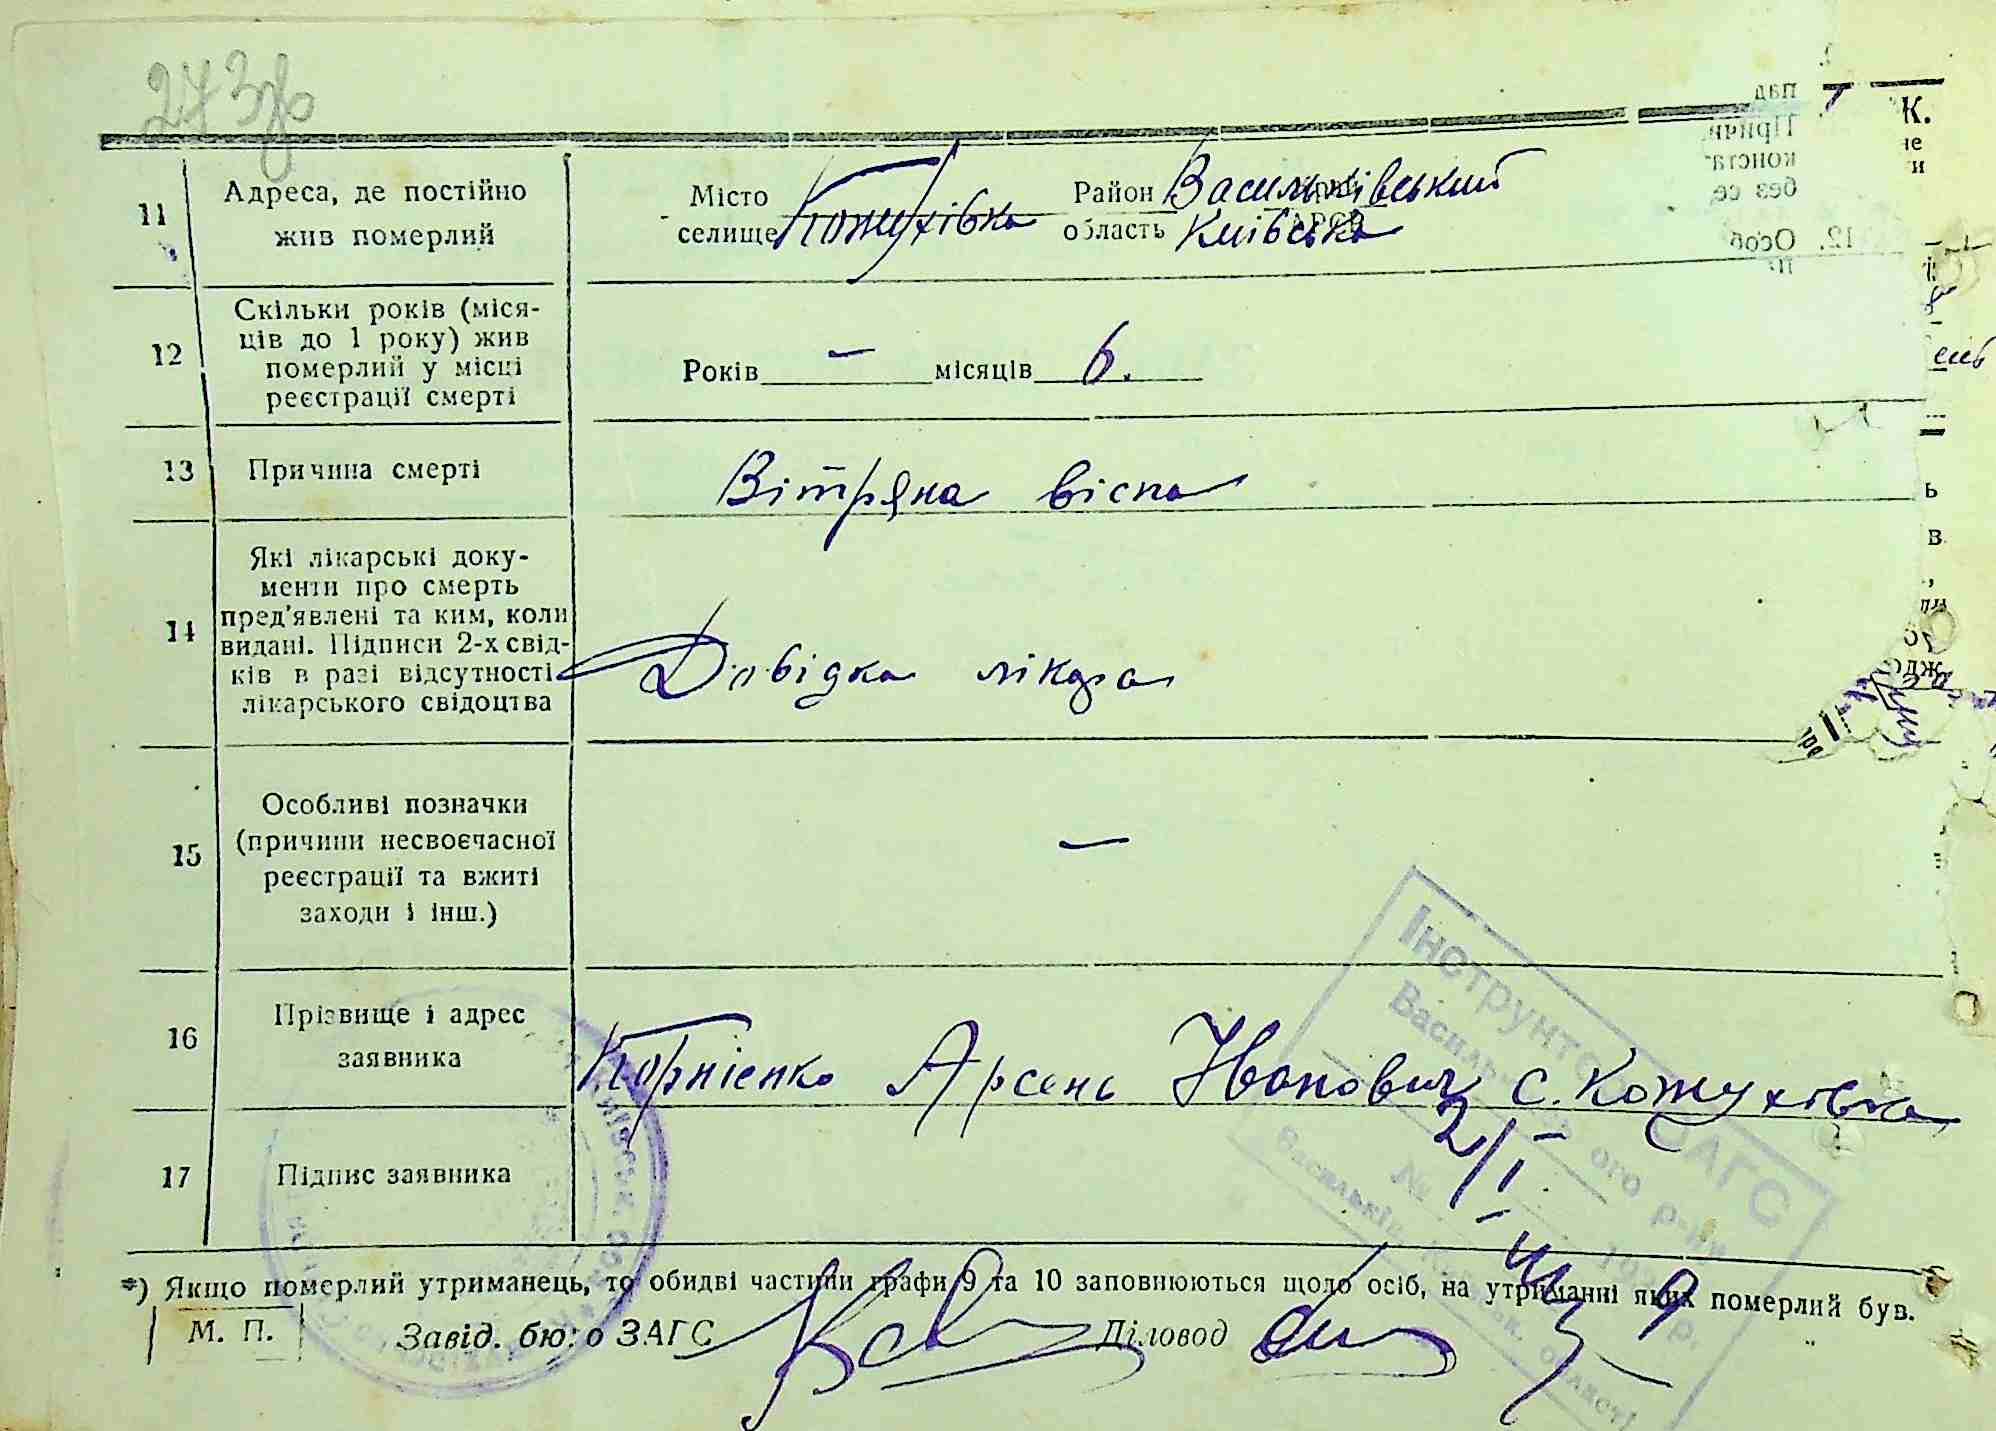 273
11
Адреса, де постійно
жив померлий
Місто
селище Кожухівка
Район Васильківський
область Київська
12
Скільки років (міся-
ців до 1 року) жив
померлий у місці
реєстрації смерті
Років — місяців 6.
13
Причина смерті
Вітряна віспа
14
Які лікарські доку-
менти про смерть
пред'явлені та ким, коли
видані. Підписи 2-х свід-
ків в разі відсутності
лікарського свідоцтва
Довідка лікара
15
Особливі позначки
(причини несвоєчасної
реєстрації та вжиті
заходи і інш.)
—
16
Прізвище і адрес
заявника
Корнієнко Арсень Іванович с. Кожухівка
17
Підпис заявника
Інструктор ЗАГС
2/I
*) Якщо померлий утриманець, то обидві частини графи 9 та 10 заповнюються щодо осіб, на утриманні яких померлий був.
М. П.
Завід. бюро ЗАГС
Діловод